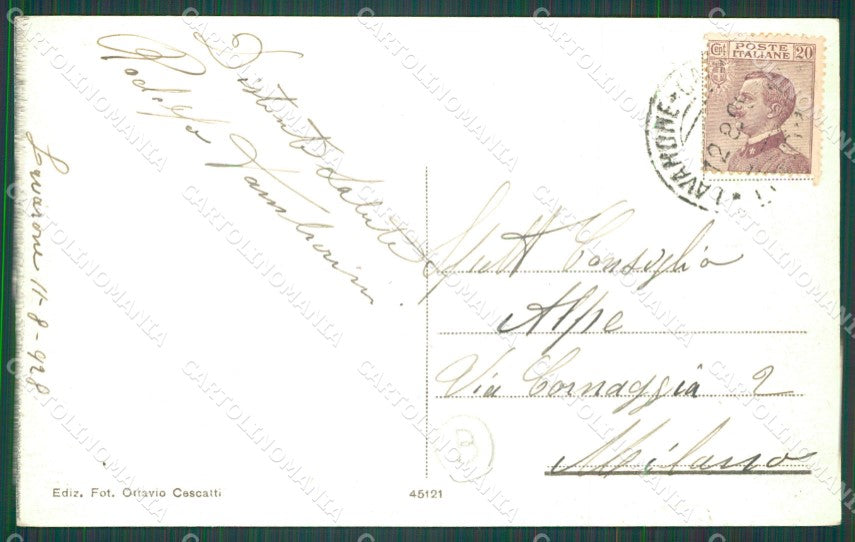 Distinti Saluti
Rodolfo Tamburini
Lavarone 11-8-928
Spett Consiglio
Alpe
Via Cornaggia 2
Milano
Cent POSTE ITALIANE 20
LAVARONE
Ediz. Fot. Ottavio Cescatti
45121
CARTOLINOMANIA